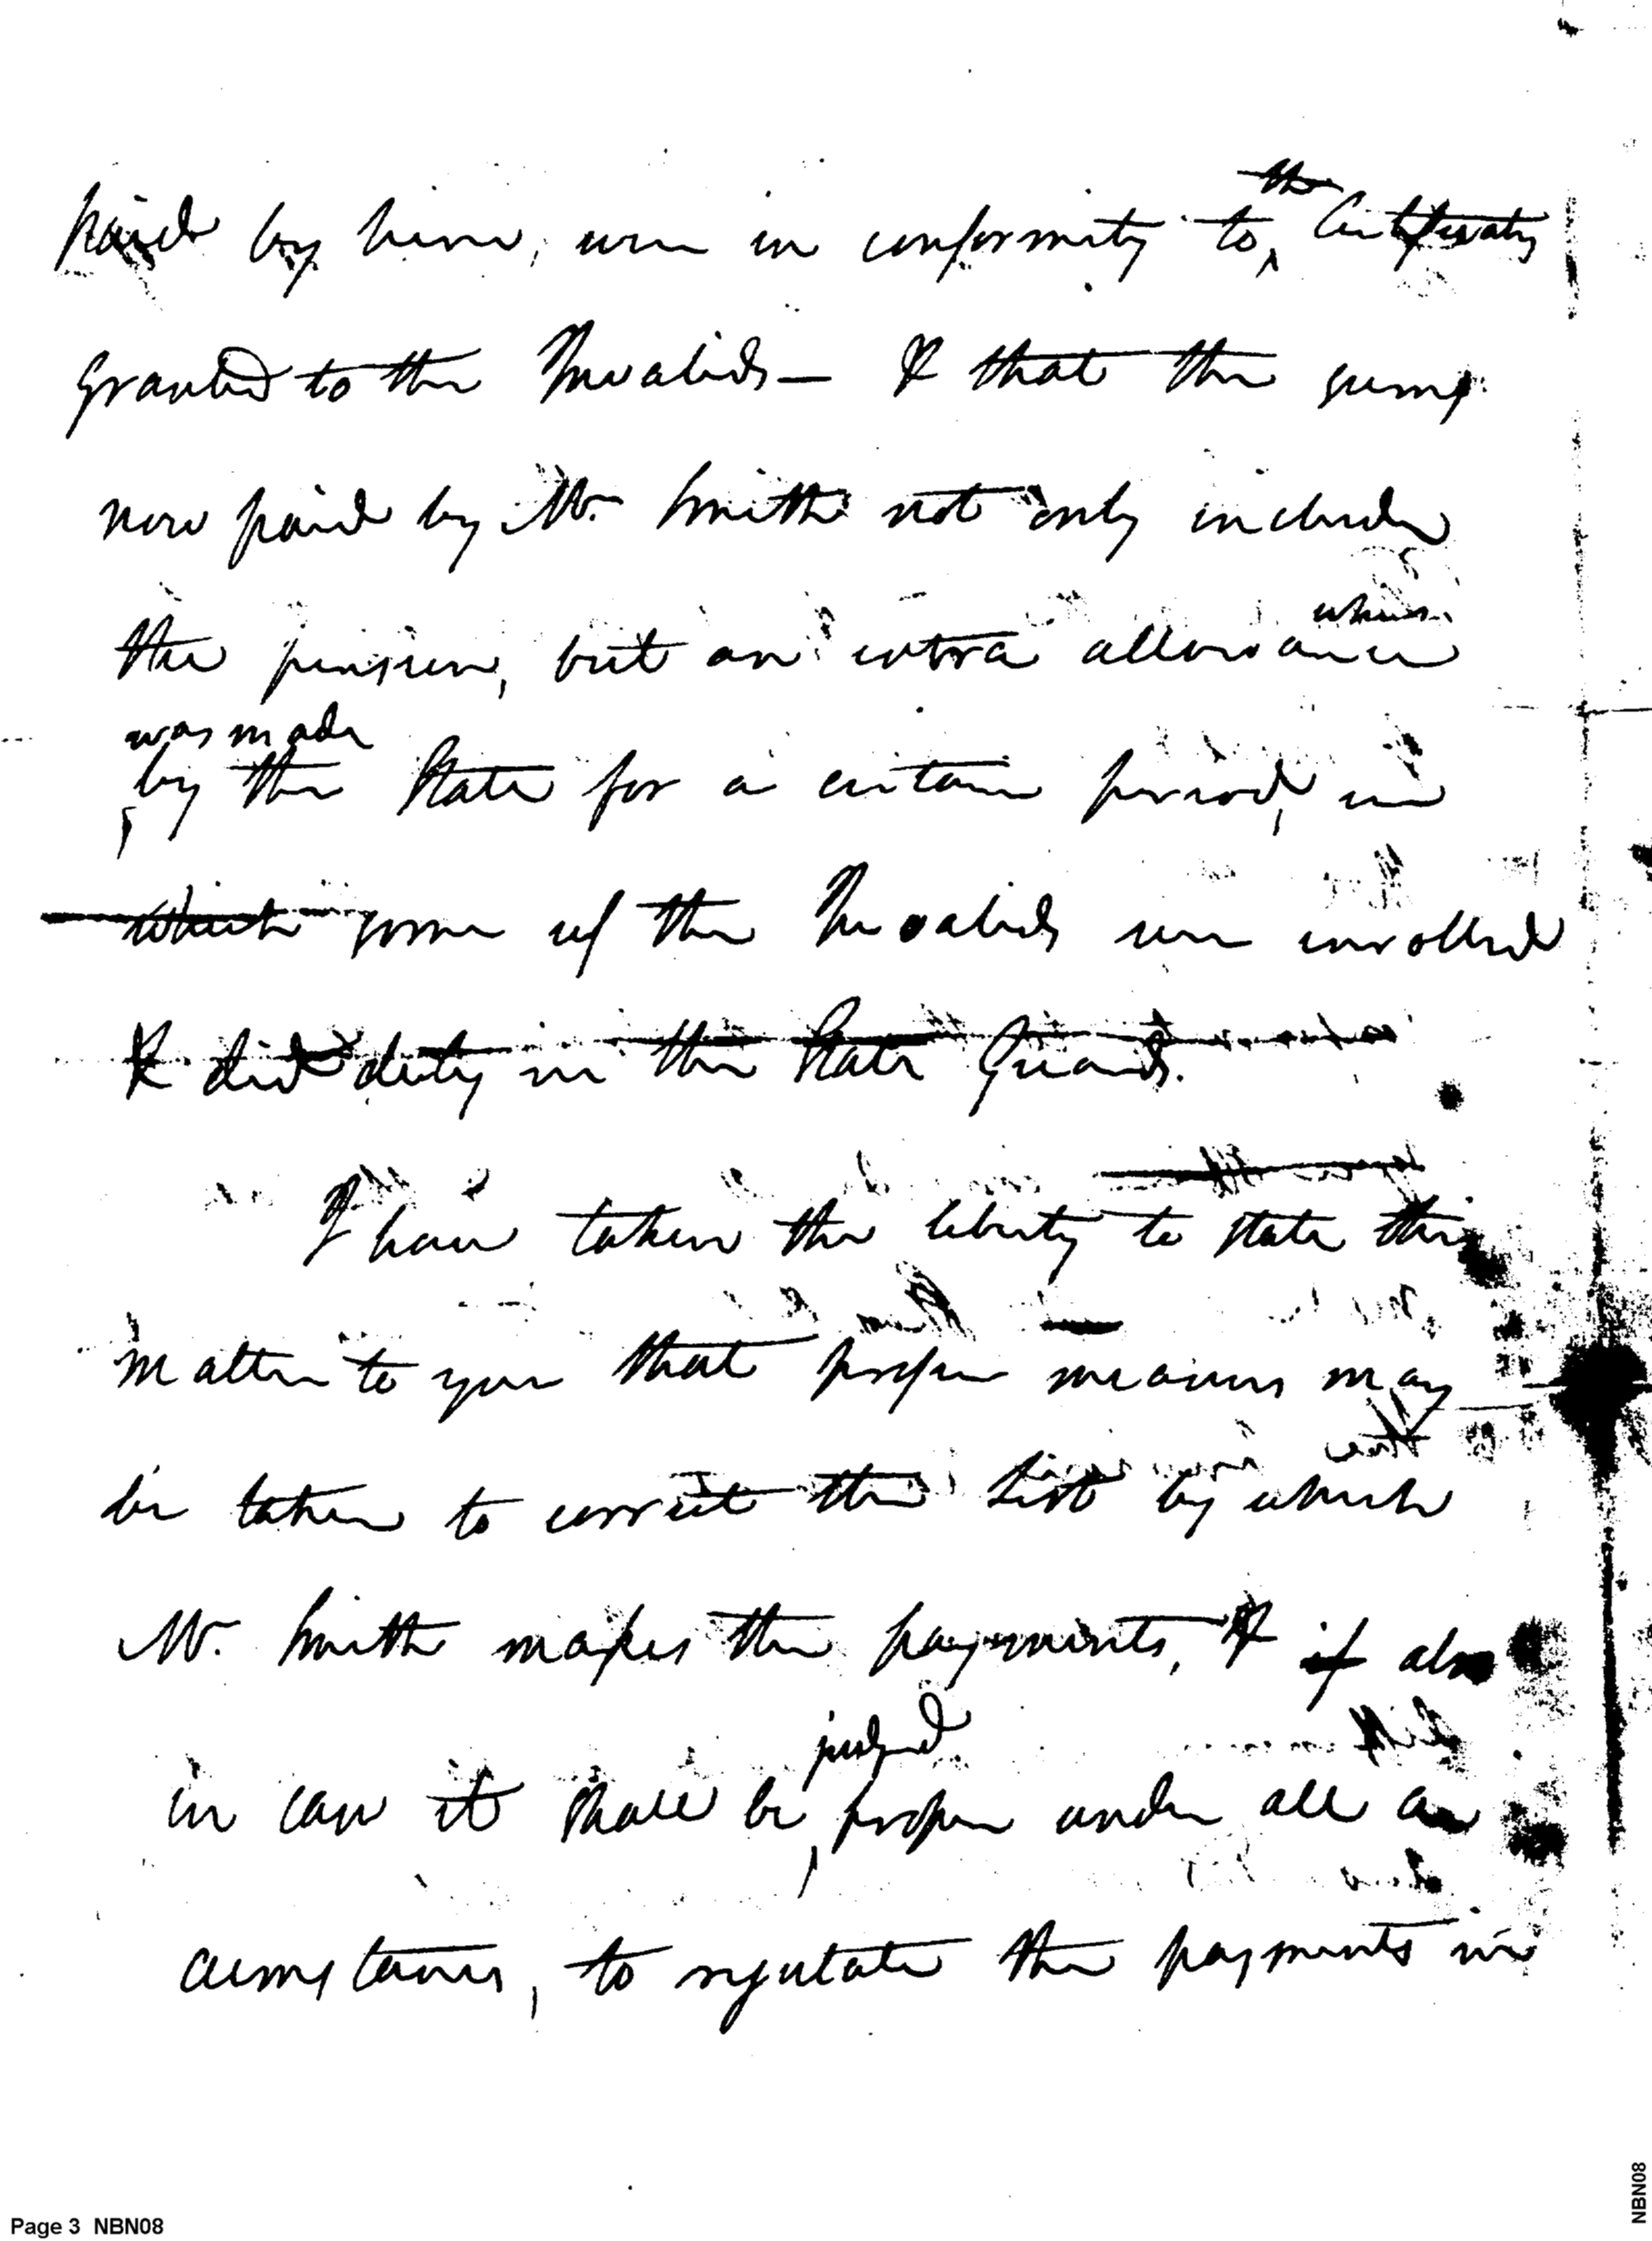 the
paid by him, were in conformity to Certificates
granted to the Invalids — & that the sums
now paid by Mr. Smith not only includes
which
the pension, but an extra allowance
was made
by the State for a certain period, in
which some of the Invalids were enrolled
& did duty in the State Guards.
I have taken the liberty to state this
matter to you that proper means may
be taken to correct the list by which
Mr. Smith makes the payments, & if also
judged
in case it shall be proper under all cir
cumstances, to regulate the payments in
Page 3 NBN08
NBN08